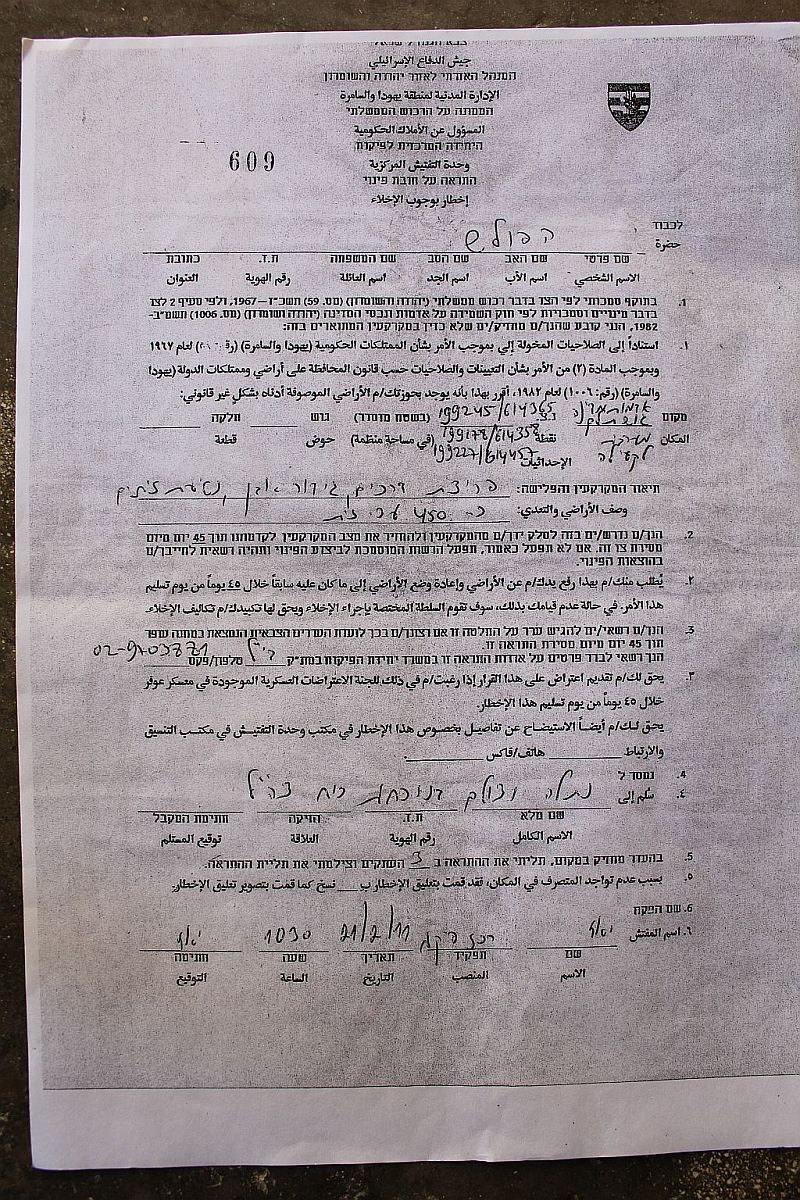 צבא ההגנה לישראל
جيش الدفاع الإسرائيلي
המנהל האזרחי לאזור יהודה והשומרון
الإدارة المدنية لمنطقة يهودا والسامرة
הממונה על הרכוש הממשלתי
المسؤول عن الأملاك الحكومية
היחידה המרכזית לפיקוח
وحدة التفتيش المركزية
התראה על חובת פינוי
إخطار بوجوب الإخلاء
609
לכבוד
حضرة
הפולש
שם פרטי שם האב שם הסב שם המשפחה ת.ז. כתובת
الاسم الشخصي اسم الأب اسم الجد اسم العائلة رقم الهوية العنوان
1. בתוקף סמכותי לפי הצו בדבר רכוש ממשלתי (יהודה והשומרון) (מס. 59) תשכ"ז–1967, ולפי סעיף 2 לצו
בדבר מינויים וסמכויות לפי חוק השמירה על אדמות ונכסי המדינה (יהודה ושומרון) (מס. 1006) תשמ"ב-
1982, הנני קובע שהנך/ם מחזיק/ים שלא כדין במקרקעין המתוארים בזה:
١. استناداً إلى الصلاحيات المخولة إلي بموجب الأمر بشأن الممتلكات الحكومية (يهودا والسامرة) لعام ١٩٦٧
وبموجب المادة (٢) من الأمر بشأن التعيينات والصلاحيات حسب قانون المحافظة على أراضي وممتلكات الدولة (يهودا
والسامرة) (رقم: ١٠٠٦) لعام ١٩٨٢، أقرر بهذا بأنه يوجد بحوزتك/م الأراضي الموصوفة أدناه بشكل غير قانوني:
מקום אדמות מדינה נ.צ. 199245/614365 (בשטח מוסדר) גוש חלקה
المكان نقطة 199178/614358 (في مساحة منظمة) حوض قطعة
الإحداثيات 199227/614457
תיאור המקרקעין והפלישה: פריצת דרכים, גידור אבן, נטיעת זיתים
وصف الأراضي والتعدي: כ- 450 עצי זית
2. הנך/ם נדרש/ים בזה לסלק ידך/ם מהמקרקעין ולהחזיר את מצב המקרקעין לקדמותו תוך 45 יום מיום
מסירת צו זה. אם לא תפעל כאמור, תפעל הרשות המוסמכת לביצוע הפינוי ותהיה רשאית לחייבך/ם
בהוצאות הפינוי.
٢. يُطلب منك/م بهذا رفع يدك/م عن الأراضي وإعادة وضع الأراضي إلى ما كان عليه سابقاً خلال ٤٥ يوماً من يوم تسليم
هذا الأمر. في حالة عدم قيامك بذلك، سوف تقوم السلطة المختصة بإجراء الإخلاء ويحق لها تكبيدك/م تكاليف الإخلاء.
3. הנך/ם רשאי/ים להגיש ערר על החלטה זו אם רצונך/ם בכך לועדת העררים הצבאית הנמצאת במחנה עופר
תוך 45 יום מיום מסירת התראה זו.
הנך רשאי לברר פרטים על אודות התראה זו במשרד יחידת הפיקוח במת"ק טלפון/פקס 02-9703871
٣. يحق لك/م تقديم اعتراض على هذا القرار إذا رغبت/م في ذلك للجنة الاعتراضات العسكرية الموجودة في معسكر عوفر
خلال ٤٥ يوماً من يوم تسليم هذا الإخطار.
يحق لك/م أيضاً الاستيضاح عن تفاصيل بخصوص هذا الإخطار في مكتب وحدة التفتيش في مكتب التنسيق
والارتباط هاتف/فاكس
4. נמסר ל
٤. سُلم إلى נתלה וצולם בנוכחות כוח צה"ל
שם מלא ת.ז. הזיקה חתימת המקבל
الاسم الكامل رقم الهوية العلاقة توقيع المستلم
5. בהעדר מחזיק במקום, תליתי את ההתראה ב 3 העתקים וצילמתי את תליית ההתראה.
٥. بسبب عدم تواجد المتصرف في المكان، فقد قمت بتعليق الإخطار ب نسخ كما قمت بتصوير تعليق الإخطار.
6. שם הפקח
٦. اسم المفتش 21/2/11 1030
שם תפקיד תאריך שעה חתימה
الاسم المنصب التاريخ الساعة التوقيع